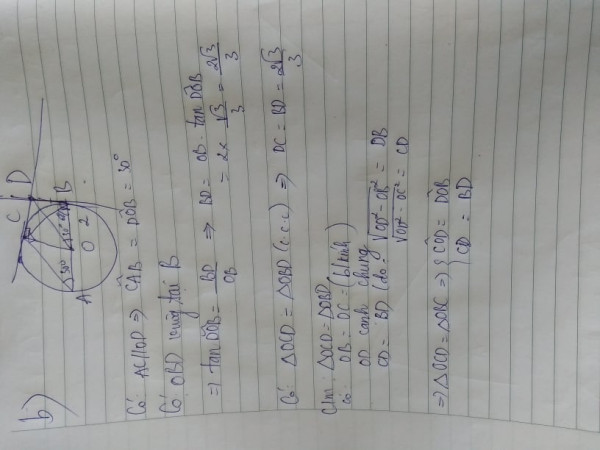 b)
C D
30° 30°
O 2 B
A
Có: AC//OD ⇒ CÂB = DÔB = 30°
Có OBD vuông tại B
⇒ tan DÔB = BD/OB ⇒ BD = OB . tan DÔB
= 2 x √3/3 = 2√3/3
Có: △OCD = △OBD (c.c.c) ⇒ DC = BD = 2√3/3
C/m: △OCD = △OBD
có: OB = OC = (bkính)
OD cạnh chung
CD = BD (do: √OD² - OB² = DB
√OD² - OC² = CD
⇒ △OCD = △OBC ⇒ { CÔD = DÔB
CD = BD